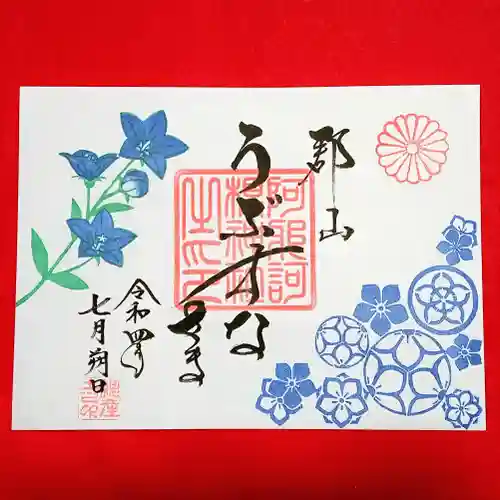 郡山
うぶすな
さま
阿邪訶
根神社
之印
令和四年
七月朔日